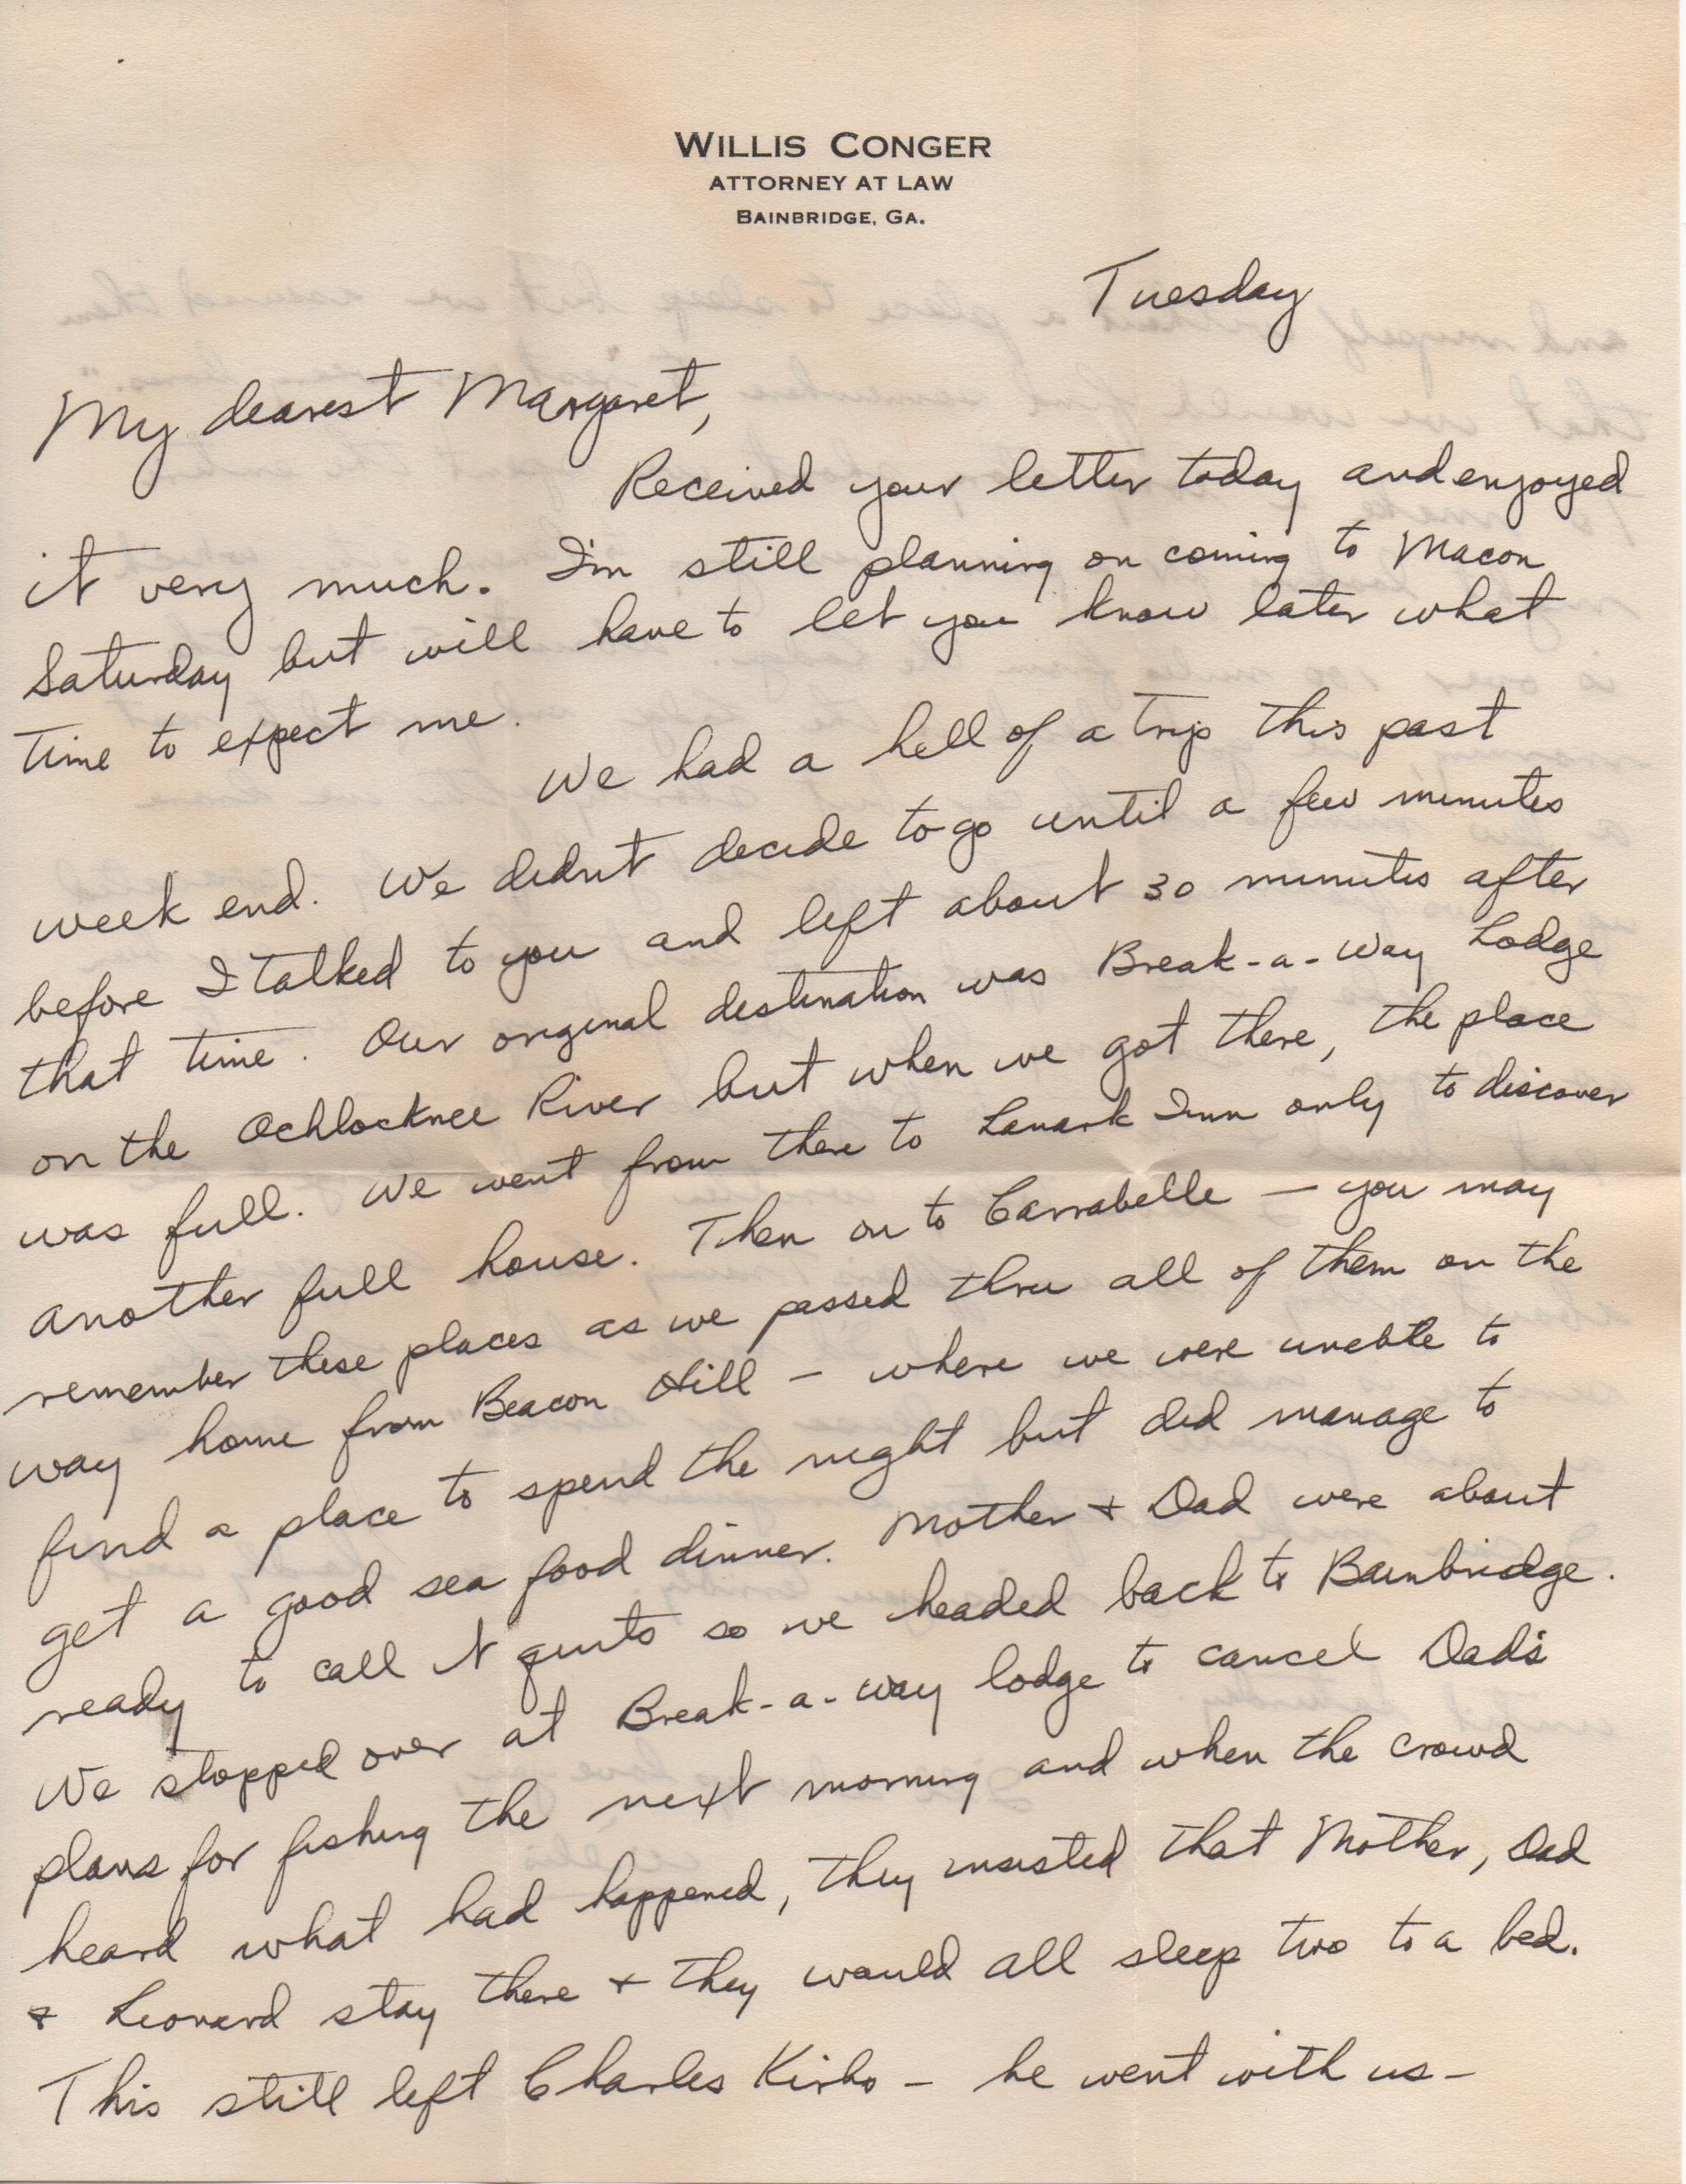 WILLIS CONGER
ATTORNEY AT LAW
BAINBRIDGE, GA.
Tuesday
My dearest Margaret,
Received your letter today and enjoyed
it very much. I'm still planning on coming to Macon
Saturday but will have to let you know later what
time to expect me.
We had a hell of a trip this past
week end. We didn't decide to go until a few minutes
before I talked to you and left about 30 minutes after
that time. Our original destination was Break-a-way Lodge
on the Ochlocknee River but when we got there, the place
was full. We went from there to Lanark Inn only to discover
another full house. Then on to Carrabelle - you may
remember these places as we passed thru all of them on the
way home from Beacon Hill - where we were unable to
find a place to spend the night but did manage to
get a good sea food dinner. Mother + Dad were about
ready to call it quits so we headed back to Bainbridge.
We stopped over at Break-a-way lodge to cancel Dad's
plans for fishing the next morning and when the crowd
heard what had happened, they insisted that Mother, Dad
+ Leonard stay there + they would all sleep two to a bed.
This still left Charles Kirbo - he went with us -